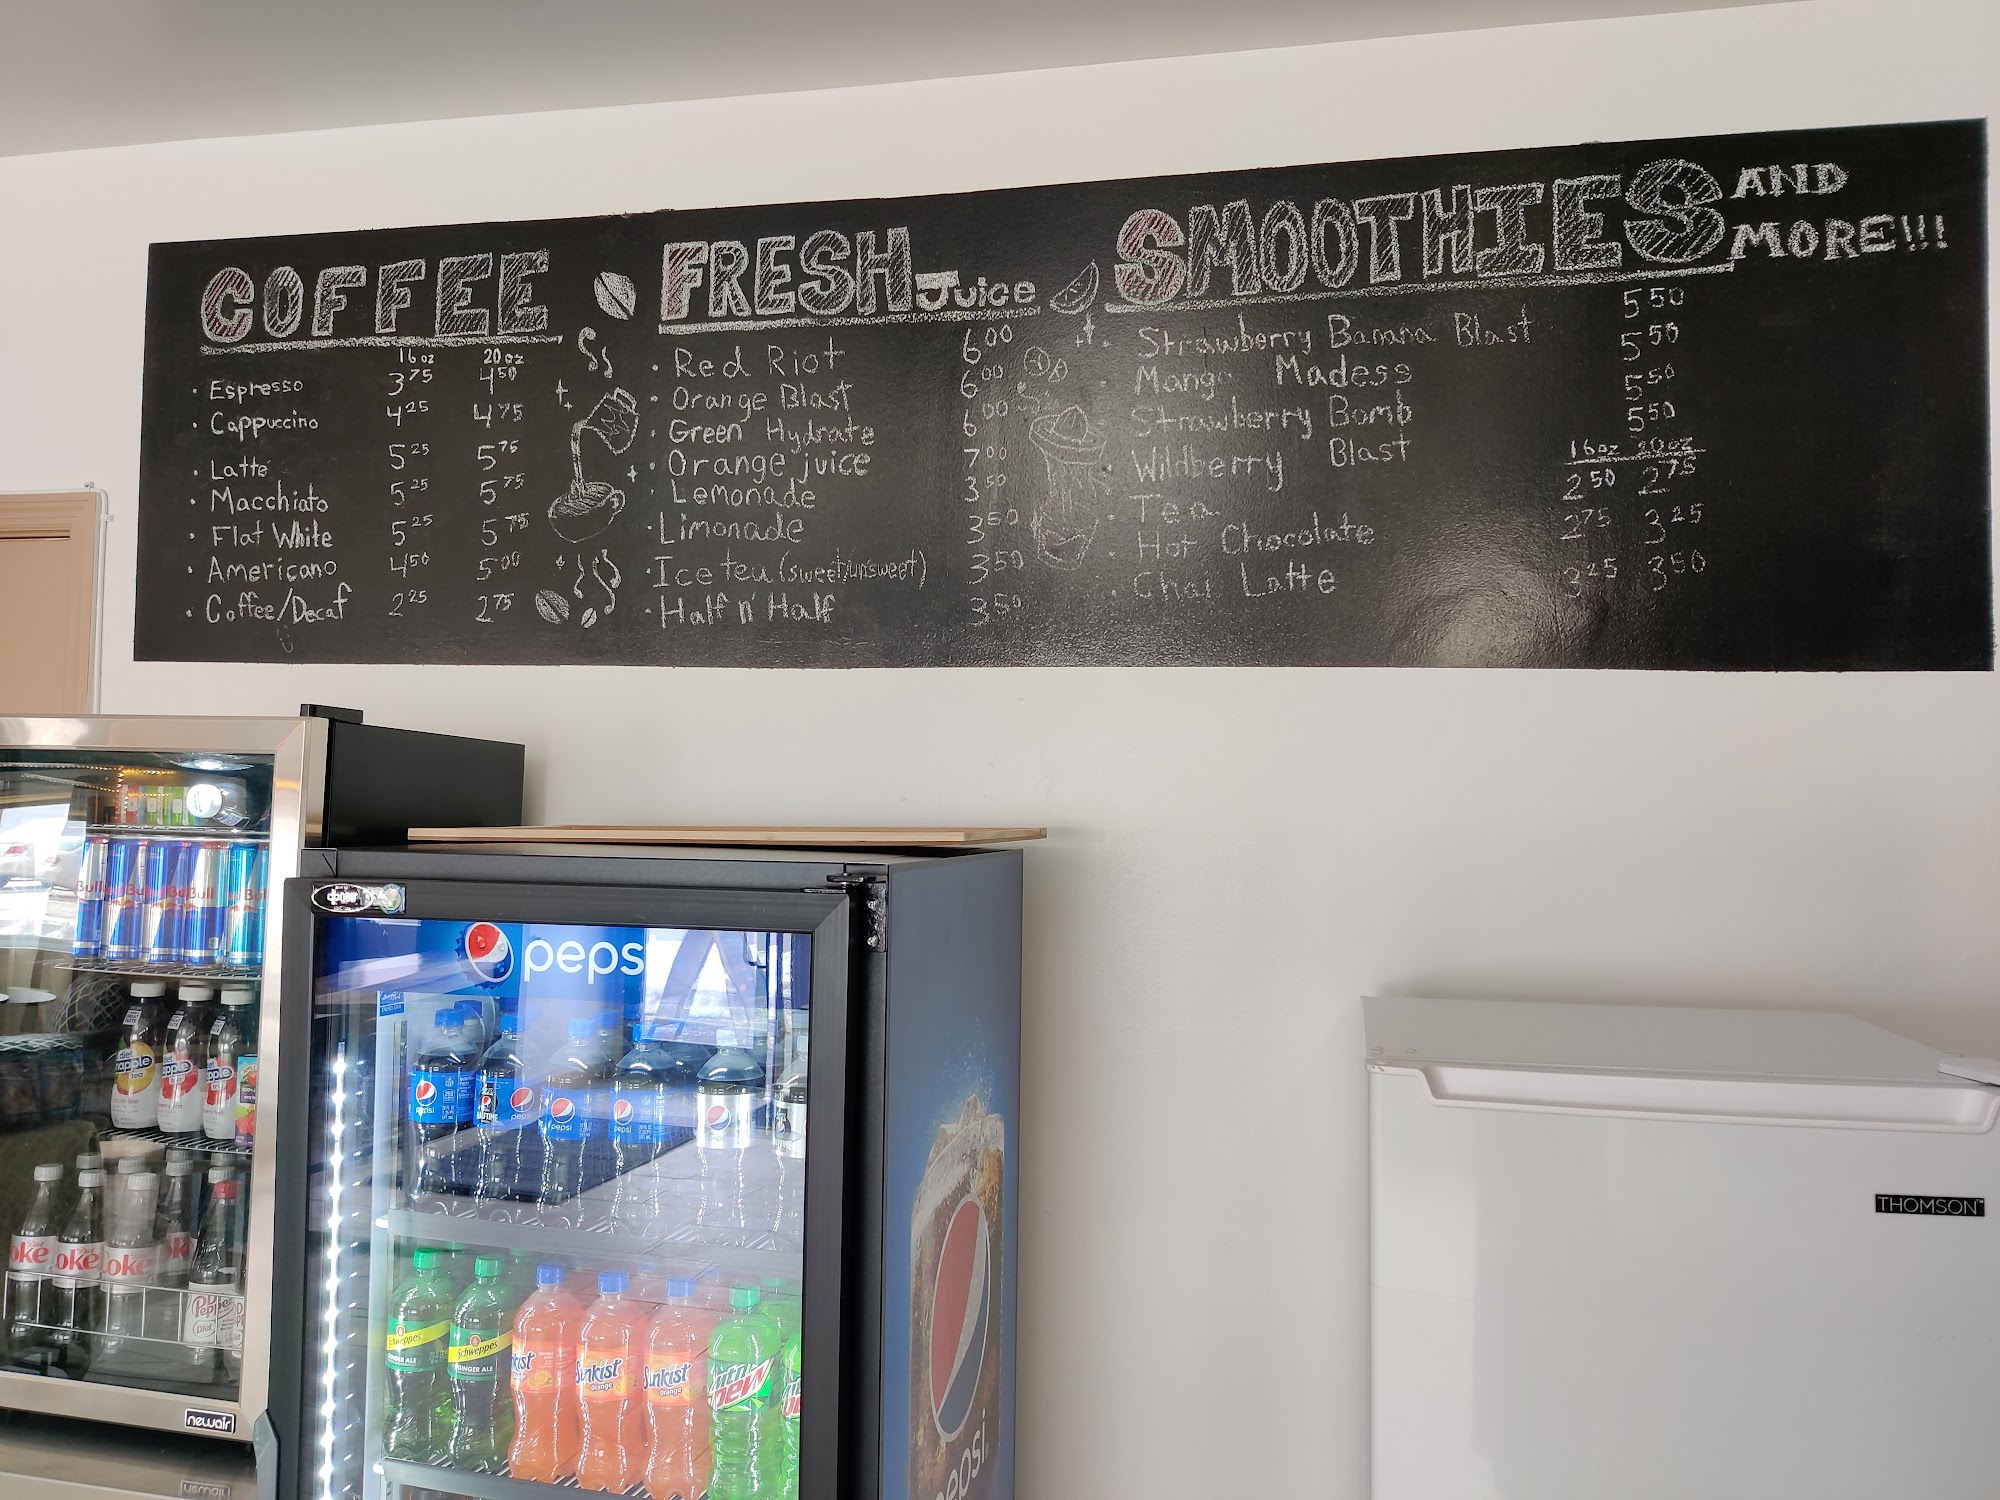 COFFEE
16oz 20oz
· Espresso 3.75 4.50
· Cappuccino 4.25 4.75
· Latte 5.25 5.75
· Macchiato 5.25 5.75
· Flat White 5.25 5.75
· Americano 4.50 5.00
· Coffee/Decaf 2.25 2.75
FRESH Juice
· Red Riot 6.00
· Orange Blast 6.00
· Green Hydrate 6.00
· Orange juice 7.00
· Lemonade 3.50
· Limonade 3.50
· Ice tea (sweet/unsweet) 3.50
· Half n' Half 3.50
SMOOTHIES AND MORE!!!
· Strawberry Banana Blast 5.50
· Mango Madess 5.50
· Strawberry Bomb 5.50
· Wildberry Blast 5.50
16oz 20oz
· Tea 2.50 2.75
· Hot Chocolate 2.75 3.25
· Chai Latte 3.25 3.50
pepsi
pepsi
pepsi
pepsi
pepsi
Schweppes
GINGER ALE
Schweppes
GINGER ALE
Sunkist
Orange
Sunkist
Orange
Mtn
DEW
pepsi
Bull
Bull
diet
apple
tea
oke
oke
oke
Dr Pepper
Diet
newair
THOMSON